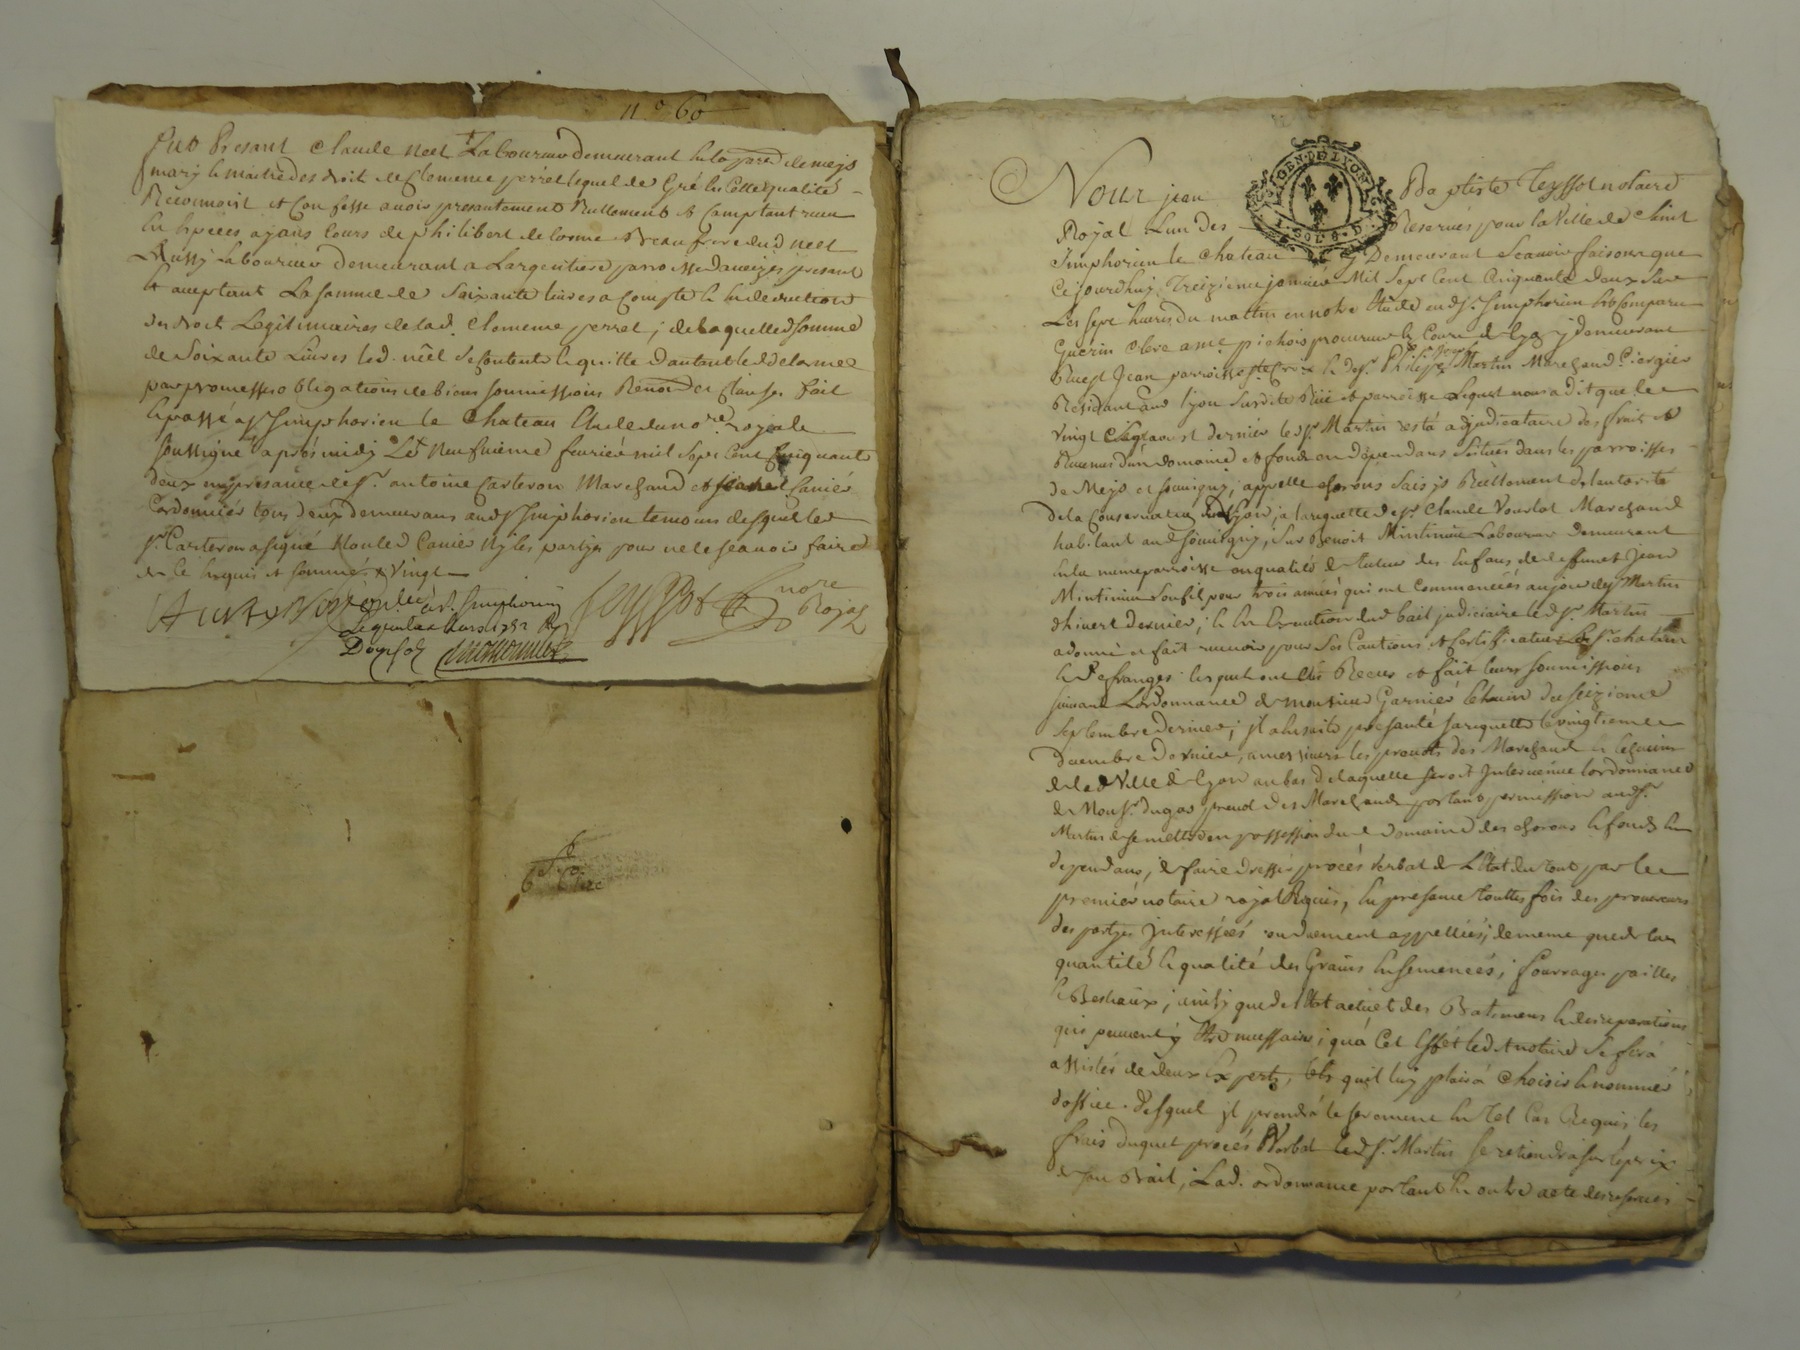 n° 60
Fut Présant Claude neel Laboureur demeurant en la parr. de meys
mary & maitre des droit de Clemence perret lequel de Gré en Cette qualité
Reconnoist et Confesse avoir presentement Réellement & Comptant reçu
en Espèces ayans Cours de philibert delorme Beaufrere dud. neel
Aussy Laboureur demeurant a Largentiere parroisse daveizes presant
& acceptant La somme de Soixante livres a Compte & en deduction
des droits Légitimaires de lad. Clemence perret ; de laquelle somme
de Soixante Livres led. néel se Contente & quitte d'autant led. delorme
par promesses obligations de biens soumissions Renon. et Clauses fait
& passé a St Simphorien le Chateau Etude du no.re royal
soussigné après midy Le Neufvieme fevrier mil sept Cent Cinquante
deux en présance de Sr. antoine Carteron Marchand et Canier
Cordonnier tous deux demeurans aud. St Simphorien temoins desquels led.
Sr. Carteron a signé Non led. Canier Ny les partyes pour ne le sçavoir faire
de ce Enquis et sommés
Teyssot no.re Royal
Con.lé a St. Simphorien
Nous jean Baptiste Teyssot notaire
GEN. DE LYON
SOL 8. D.
Royal Lun des Reservés pour la Ville de Saint
Simphorien le Chateau y Demeurant Scavoir faisons que
Cejourdhuy Treizieme janvier Mil Sept Cent Cinquante deux sur
Les sept heures du mattin en notre Etude aud. St. Simphorien Est Comparu
Guerin Clerc a me. pichois procureur ez Cours de Lyon y demeurant
Rue St Jean parroisse Ste Croix & de Sr. Philippe Martin Marchand Ciergier
Residant aud. Lyon susdite Rüe et parroisse Lequel nous a dit que le
vingt aoust dernier led. Sr. Martin resta adjudicataire des fruits et
Revenus d'un domaine et fonds en dépendans Scitués dans les parroisses
de Meys et Souvigny, appellé chorons saisys Réellement de lautorité
de la Conservation de Lyon, a la requette de Sr. Claude Vourlat Marchand
habitant aud. Souvigny, Sur Benoit Mintinieu Laboureur Demeurant
en la meme parroisse en qualité de tuteur des Enfans de deffunct Jean
Mintinieu Son fils pour trois années qui ont Commancées au jour des Martin
dhivert dernier ; & En Execution dud. bail judiciaire led. Sr. Martin
a donné et fait recevoir pour Ses Cautions et Certificateurs Les Srs. chatelus
& Defranges lesquels ont Etés Receus et fait leurs soumissions
suivant Lordonnance de monsieur Garnier Echevin du seizieme
Septembre dernier ; il a Ensuite présanté sa requette le vingtieme
decembre dernier, a messieurs les prevots des Marchands & Echevins
de lad. Ville de Lyon au bas de laquelle seroit Intervenüe lordonnance
de Mons.r dugas prevot des Marchands portans permission aud. Sr.
Martin de se mettre en possession dud. domaine des chorons & fonds En
dependans, & faire dresser procés verbal de L'Etat du tout par le
premier notaire royal Requis, En presance touttes fois des procureurs
des partyes Interessées ou duement appellées ; de meme que de la
quantité & qualité des Grains Ensemencés ; fourrages pailles
& Bestiaux ; ainsy que de l'Etat actuel des Batimens & des reparations
qui peuvent y Etre necessaires ; qu'a Cet Effét led. notaire Se fera
assister de deux Experts, tels qu'il luy plaira Choisir & nommer
doffice. desquels jl prendra le serement En Tel Cas Requis les
frais duquel procés Verbal led. Sr. Martin se retiendra sur le prix
de son Bail ; Lad. ordonnance portant En outre acte des reserves